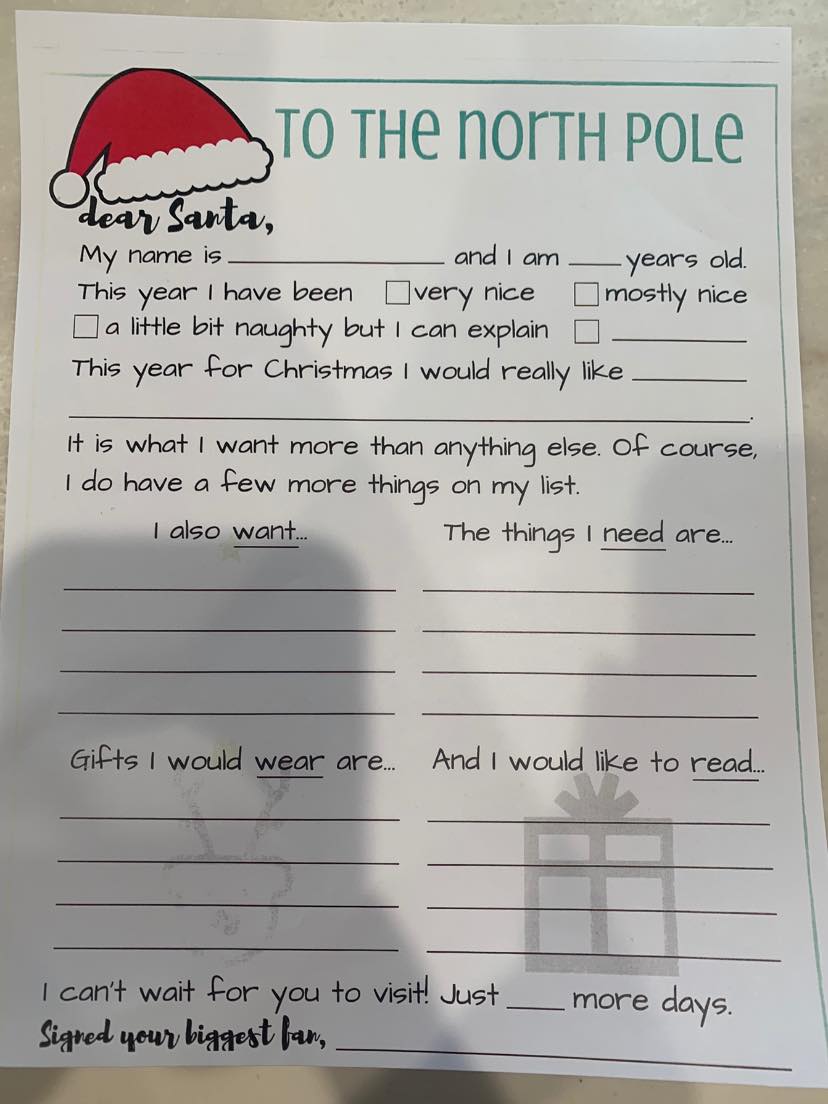 TO THE NORTH POLE
dear Santa,
My name is ________ and I am ____ years old.
This year I have been ☐ very nice ☐ mostly nice
☐ a little bit naughty but I can explain ☐ ________
This year for Christmas I would really like ________
________.
It is what I want more than anything else. Of course,
I do have a few more things on my list.
I also want...
The things I need are...
Gifts I would wear are...
And I would like to read...
I can't wait for you to visit! Just ____ more days.
Signed your biggest fan, ________